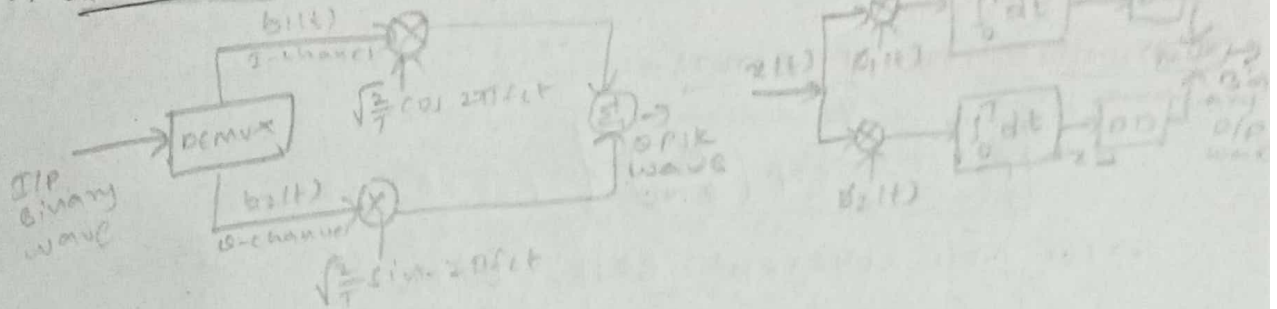 b₁(t)
I-channel
√2/T cos 2πfct
Demux
I/P
Binary
wave
b₂(t)
Q-channel
√2/T sin 2πfct
Σ
QPSK
wave
x(t)
ø₁(t)
∫₀ᵀ dt
∫₀ᵀ dt
DD
ø₂(t)
Bin
ary
O/P
wave